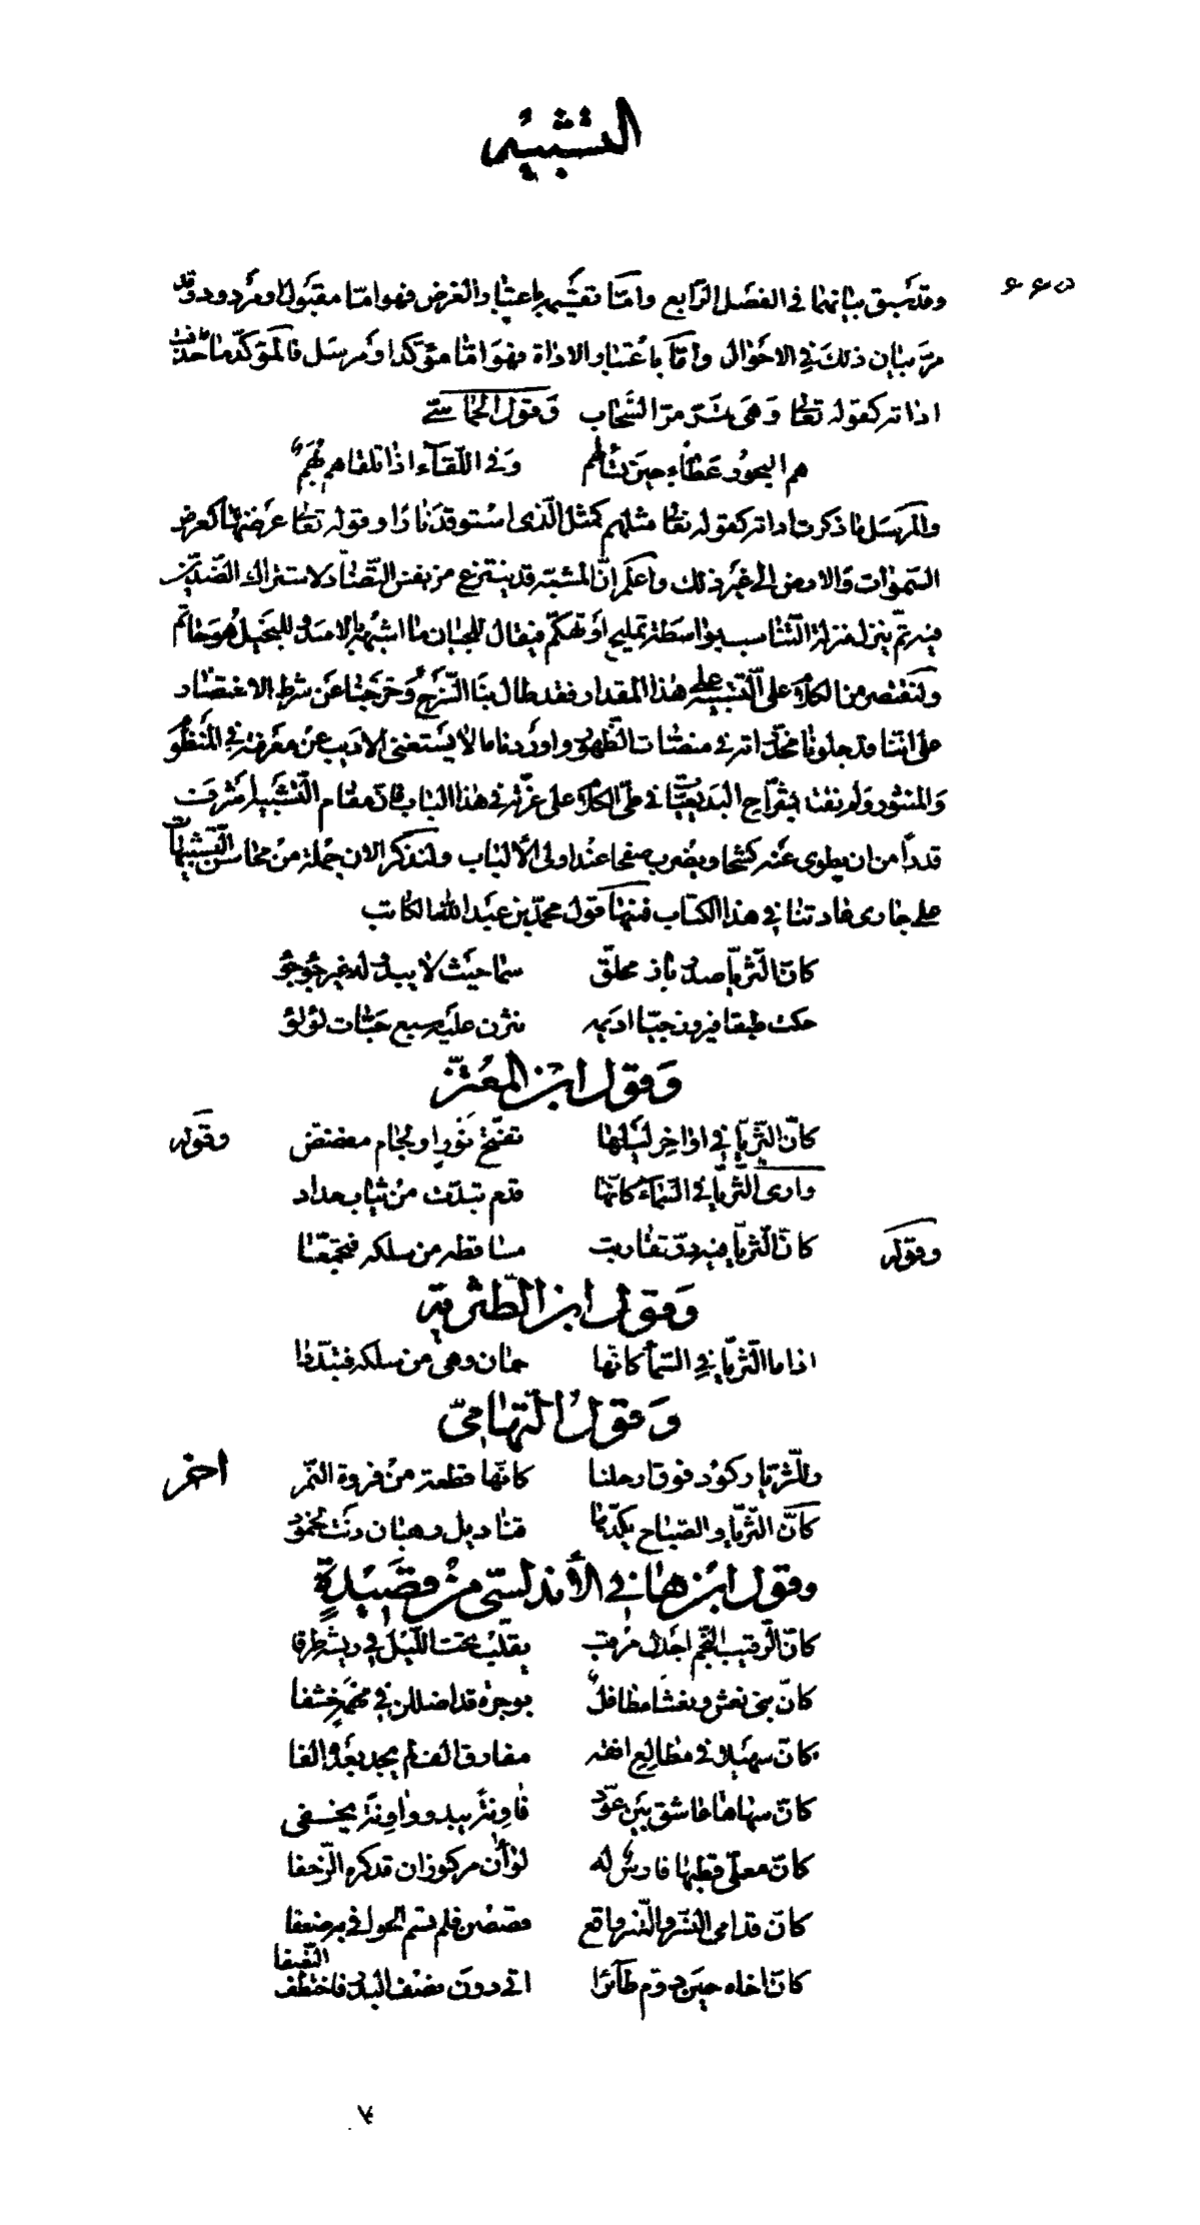 التشبيه
وقد سبق بيانهما في الفصل الرابع وامّا تقسيمه باعتبار الغرض فهو امّا مقبول او مردود وقد
مرّ بيان ذلك في الاحوال وامّا باعتبار الاداة فهو امّا مؤكد او مرسل فالمؤكّد ما حذفت
اداته كقوله تعالى وهي تمرّ مرّ السّحاب وقول الحماسيّ
هم البحور عطاء حين تسألهم وفي اللّقاء اذا تلقاهم بُهم
والمرسل ما ذكرت اداته كقوله تعالى مثلهم كمثل الّذي استوقد نارًا وقوله تعالى عرضها كعرض
السّموات والارض الى غير ذلك واعلم انّ المشبّه قد ينتزع من نفس التّضادّ لاشتراك الضّدّين
فيه ثمّ ينزل منزلة التّناسب بواسطة تمليح او تهكّم فيقال للجبان ما اشبهه بالاسد وللبخيل هو حاتم
ولنقتصر من الكلام على التّشبيه على هذا المقدار فقد طال بنا الشّرح وخرجنا عن شرط الاختصار
على انّنا قد جلونا مخدّراته في منصّات الظّهور واوردنا ما لا يستغني الاديب عن معرفته في المنظوم
والمنثور ولم نقتد بشرّاح البديعيّات في طيّ الكلام على غرّته في هذا الباب فانّ مقام التّشبيه اشرف
قدراً من ان يطوى عنه كشحا ويضرب صفحا عند اولى الألباب ولنذكر الان جملة من محاسن التّشبيهات
على جاري عادتنا في هذا الكتاب فمنها قول محمّد بن عبد اللّه الكاتب
كانّ الثّريّا صدر باز محلّق سما حيث لا يبدو له غير جؤجؤ
حكت طبقا فيروزجيّا اديمه نثرن عليه سبع حبّات لؤلؤ
وقول ابن المعتزّ
كانّ الثّريّا في اواخر ليلها تفتّح نَور او لجام مفضّض وقوله
وارى الثّريّا في السّماء كانّها قدم تبدّت من ثياب حداد
وقوله كانّ الثّريّا فيه درّ تقاربت مساقطه من سلكه فتجمّعا
وقول ابن الطّثرية
اذا ما الثّريّا في السّما كانّها جمان وهى من سلكه فتبدّدا
وقول التّهاميّ
وللثّريّا ركود فوق ارحلنا كانّها قطعة من فروة النّمر اخر
كانّ الثّريّا والصّباح يكدّها قناديل رهبان دنت لخمود
وقول ابن هانئ الأندلسيّ من قصيدةٍ
كانّ الرّقيب النّجم اجدل مرقب يقلّب تحت اللّيل في ريشه طرفا
كانّ بني نعش ونعشا مطافلٌ بوجرة قد اضللن في مهمهٍ خشفا
كانّ سهيلا في مطالع افقه مفارق الف لم يجد بعده الفا
كانّ سهاها عاشق بين عوّد فاونة يبدو واونة يخفى
كانّ معلّى قطبها فارسٌ له لواأن مركوزان قد كره الزّحفا
كانّ قدامى النّسر والنّسر واقع قصصن فلم تسم الخوافي به ضعفا
كانّ اخاه حين دوّم طآئرًا اتى دون نصف البدر فاختطف النّصفا